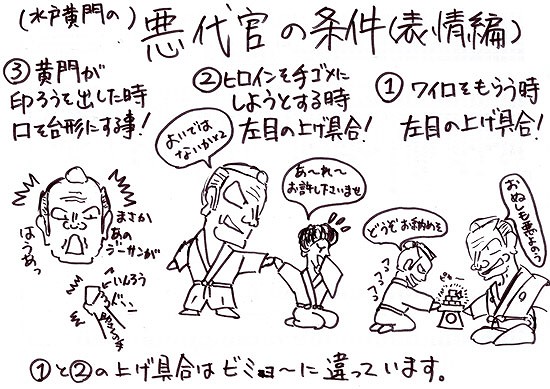 (水戸黄門の)
悪代官の条件(表情編)
① ワイロをもらう時
左目の上げ具合!
おぬしも悪よのう
どうぞお納めを
ピカー
② ヒロインを手ゴメに
しようとする時
左目の上げ具合!
よいでは
ないか×2
あ〜れ〜
お許し下さいませ
③ 黄門が
印ろうを出した時
口を台形にする事!
まさか
あの
ジーサンが
はうあっ
いんろう
どーん
助さんの手
①と②の上げ具合はビミョ〜に違っています。